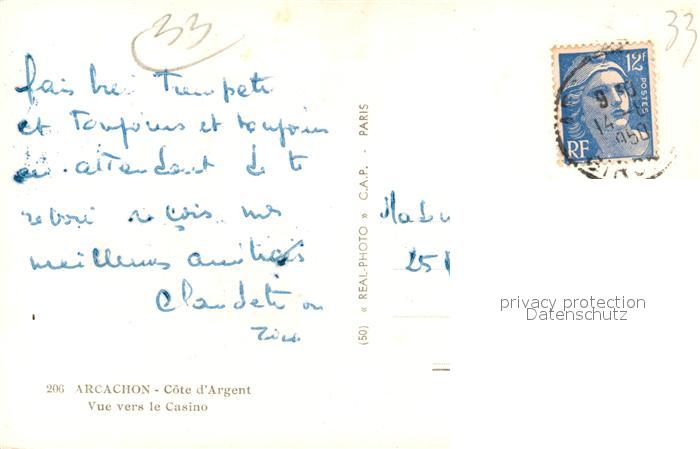 33
33
fais bref Trempette
et toujours et toujours
en attendant de te
revoir reçois mes
meilleures amitiés
Claudette ou
12F
POSTES
RF
9 30
14
950
206 ARCACHON - Côte d'Argent
Vue vers le Casino
(50) « REAL-PHOTO » C.A.P. - PARIS
25
privacy protection
Datenschutz